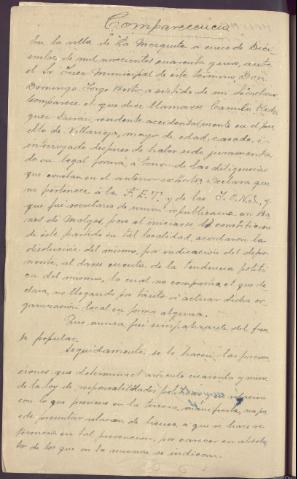 Comparecencia
En la villa de La Mezquita a once de Diciem
bre de mil novecientos cuarenta y uno, ante
el Sr. Juez Municipal de este término, Don
Domingo Jorge, asistido de mi Secretario
comparece el que dice llamarse Camilo
residente accidentalmente en el pue
blo de Villavieja, mayor de edad, casado, e
interrogado despues de haber sido juramenta
do en legal forma, a tenor de las diligencias
que constan en el anterior exhorto, declara que
no pertenece, a la F.E.T. y de las J.O.N.S., y
que fué secretario de republicana en
de pero al iniciarse la constitucion
de este partido en tal localidad, acordaron la
disolucion del mismo, por indicación del depo
nente, al darse cuenta de la tendencia politi
ca del mismo, la cual no compartia el que de
clara, no llegando por tanto ni actuar dicha or
ganización local en forma alguna.
Que nunca fué simpatizante del fren
te popular.
Seguidamente, se le hacen las preven
ciones que determina el artículo cuarenta y nueve
de la ley de responsabilidades politicas y en relacion
con lo que previene en la tercera, manifiesta, no pue
de presentar relacion de bienes a que se hace re
ferencia en tal prevencion, por carecer en absolu
to de los que en la misma se indican.